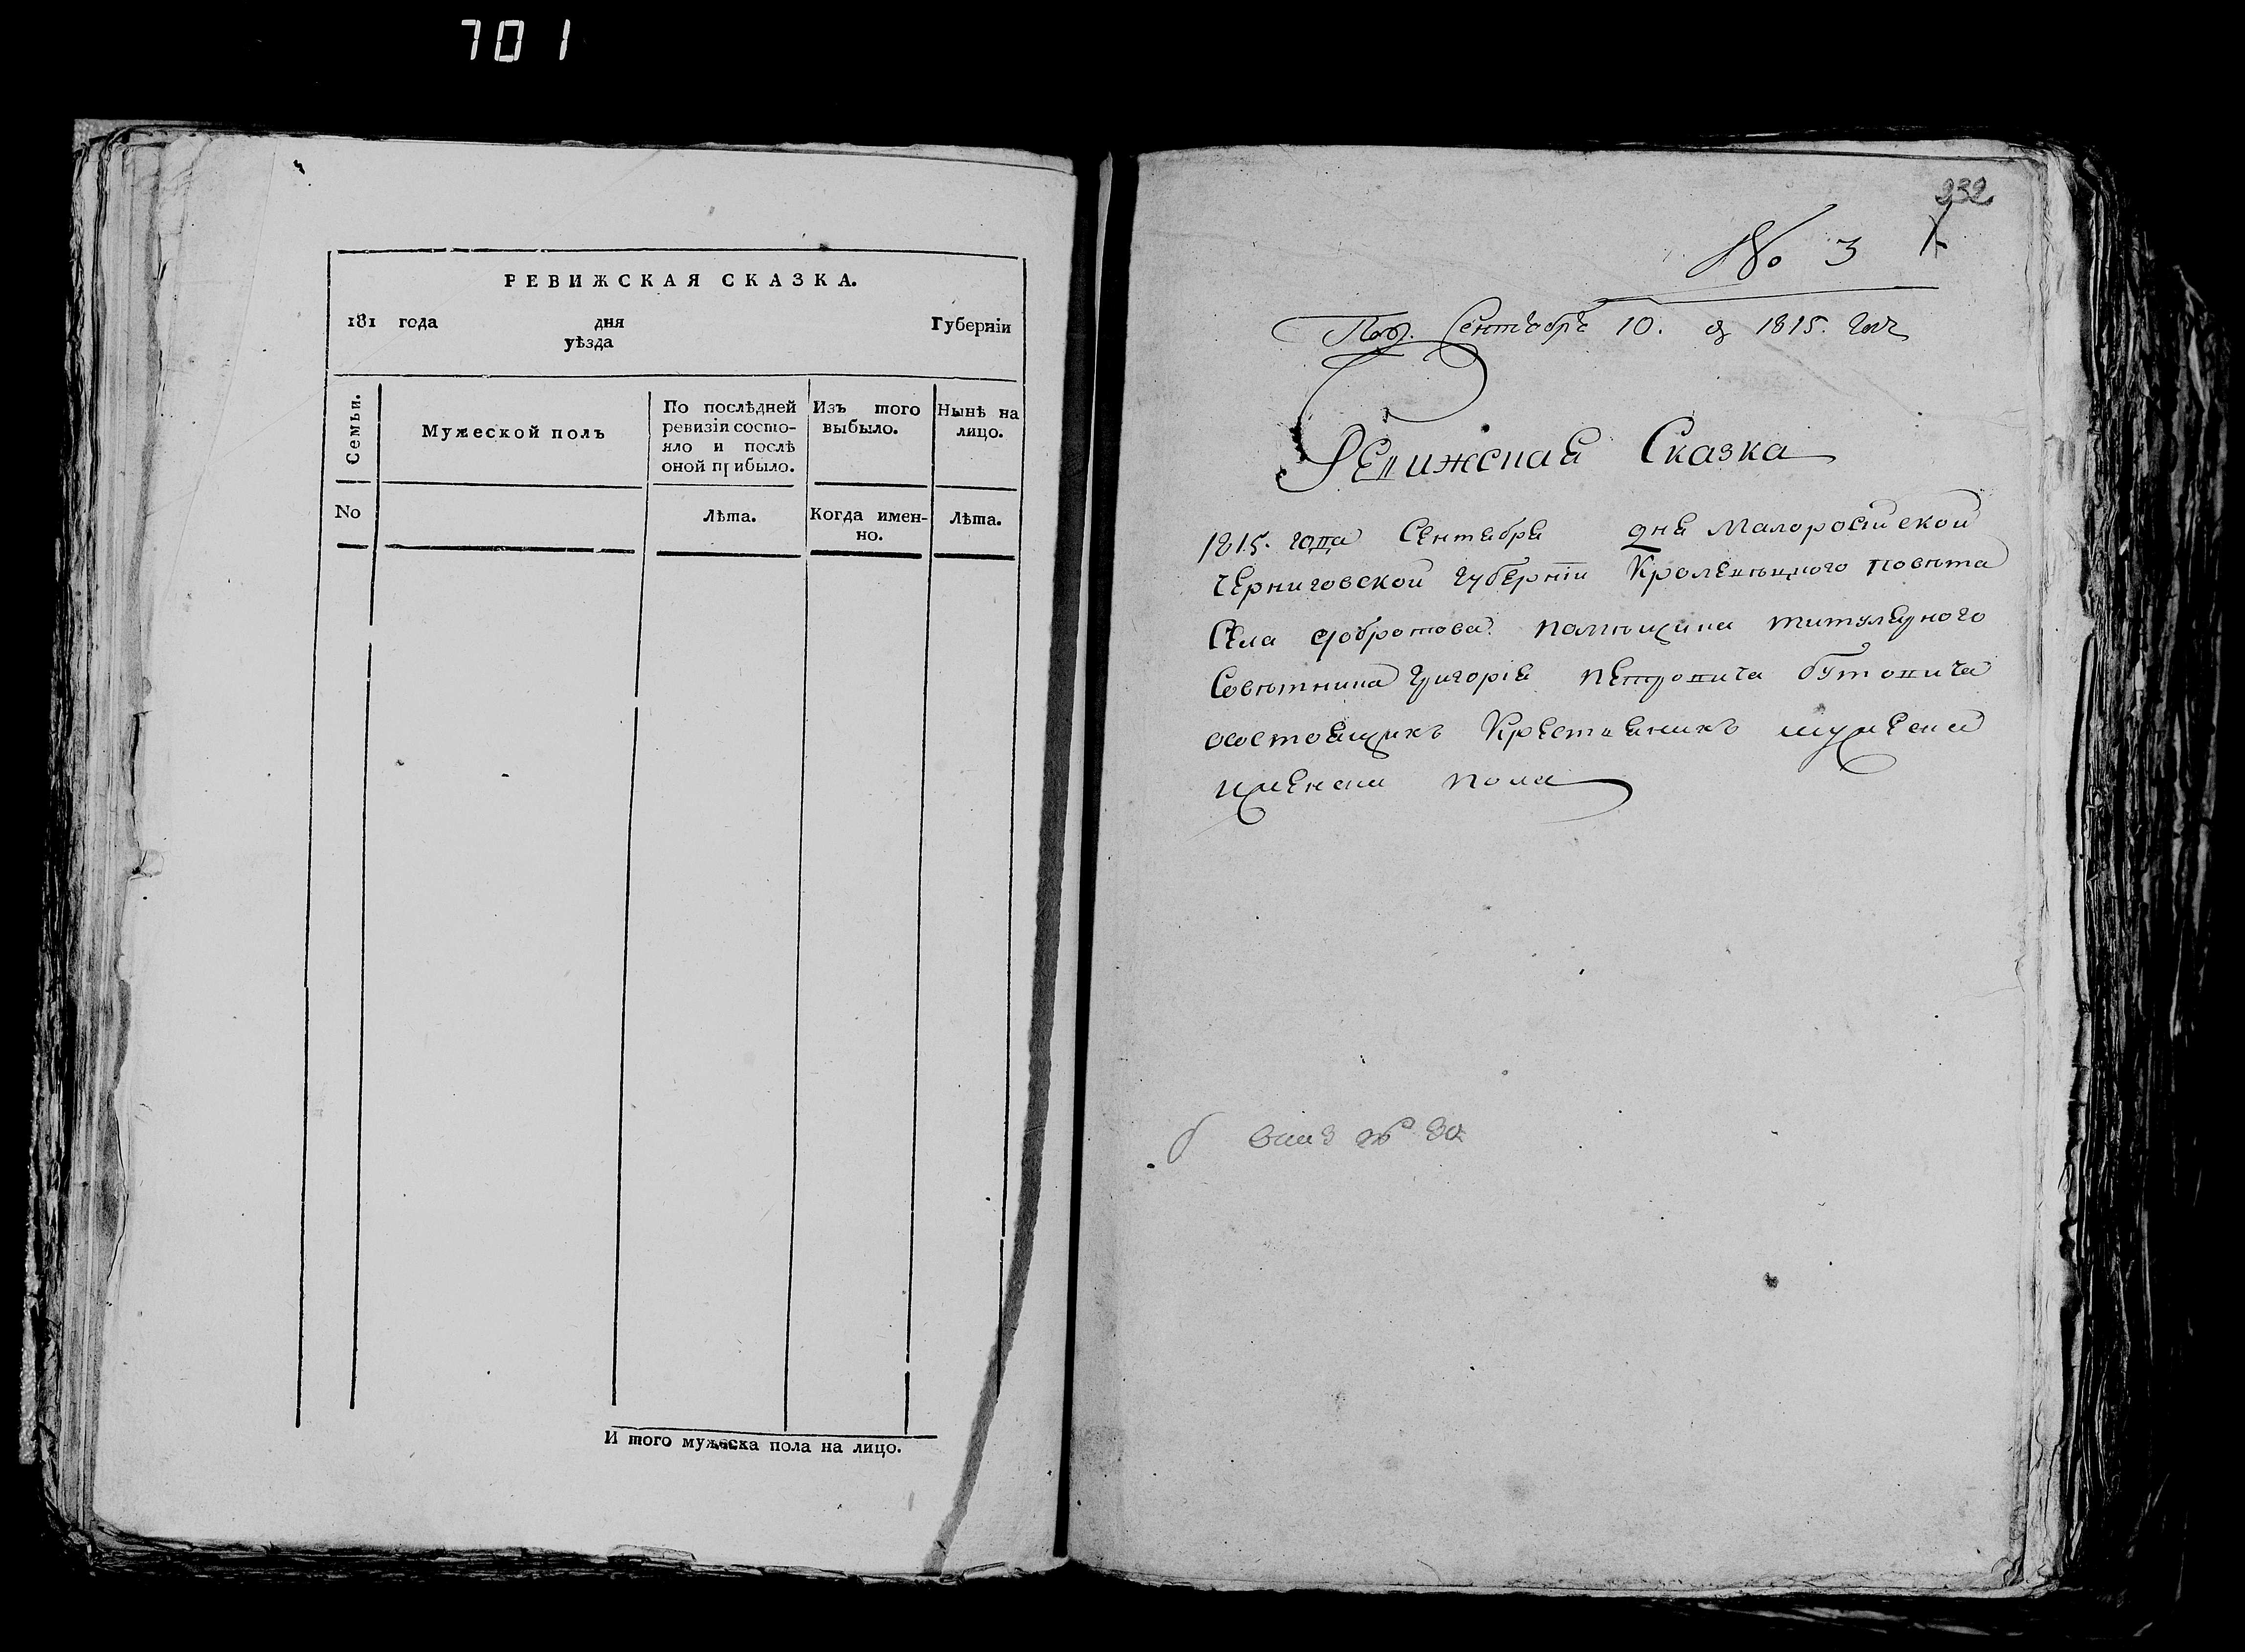 701
РЕВИЖСКАЯ СКАЗКА.
181 года дня Губерніи
уѣзда
Семьи.
Мужеской полъ
По послѣдней
ревизіи состо-
яло и послѣ
оной прибыло.
Изъ того
выбыло.
Нынѣ на
лицо.
No
Лѣта.
Когда имен-
но.
Лѣта.
И того мужеска пола на лицо.
232
No 3
Под. Сентября 10. д 1815. году
Ревижская Сказка
1815. года Сентября дня Малоросийской
Черниговской губерніи Кролевецкого повѣта
Села Добротова помѣщика титулярного
Совѣтника Григорія Петровича бутовича
о состоящихъ Крестьянихъ мужеска
и женска пола